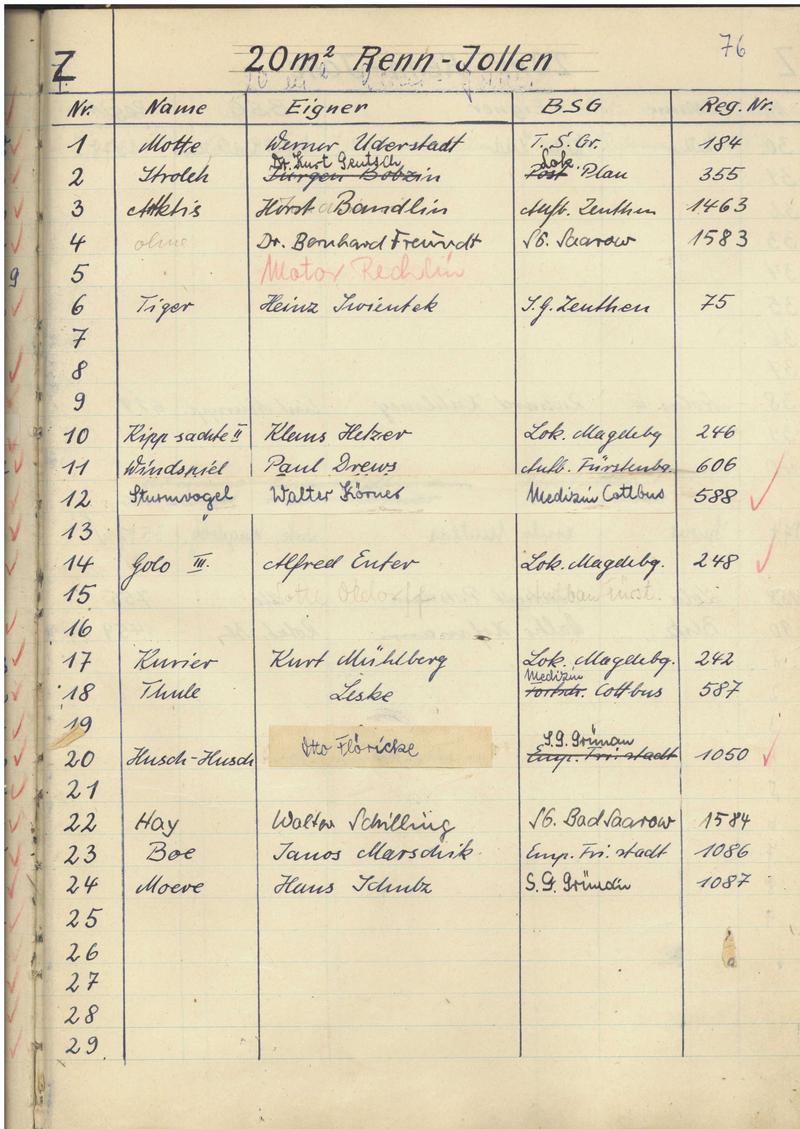 76
Z 20m² Renn-Jollen
Nr. Name Eigner BSG Reg. Nr.
1 Motte Werner Uderstadt T. S. Gr. 184
Dr. Kurt Gentsch Lok.
2 Strolch Jürgen Bobzin Post Plau 355
3 Arktis Horst Bandlin Aufb. Zeuthen 1463
4 ohne Dr. Bernhard Freundt SG. Saarow 1583
5 Motor Rechlin
6 Tiger Heinz Swientek S.G. Zeuthen 75
7
8
9
10 Kipp sachte II Klaus Hetzer Lok. Magdebg 246
11 Windspiel Paul Drews Aufb. Fürstenbg. 606
12 Sturmvogel Walter Körner Medizin Cottbus 588
13
14 Golo III. Alfred Enter Lok. Magdebg. 248
15
16
17 Kurier Kurt Mühlberg Lok. Magdebg. 242
Medizin
18 Thule Leske Fortschr. Cottbus 587
19
S.G. Grünau
20 Husch-Husch Otto Flöricke Emp. Fri. stadt 1050
21
22 Hay Walter Schilling SG. Bad Saarow 1584
23 Boe Janos Marschik Emp. Fri. stadt 1086
24 Moeve Hans Schulz S. G. Grünau 1087
25
26
27
28
29.